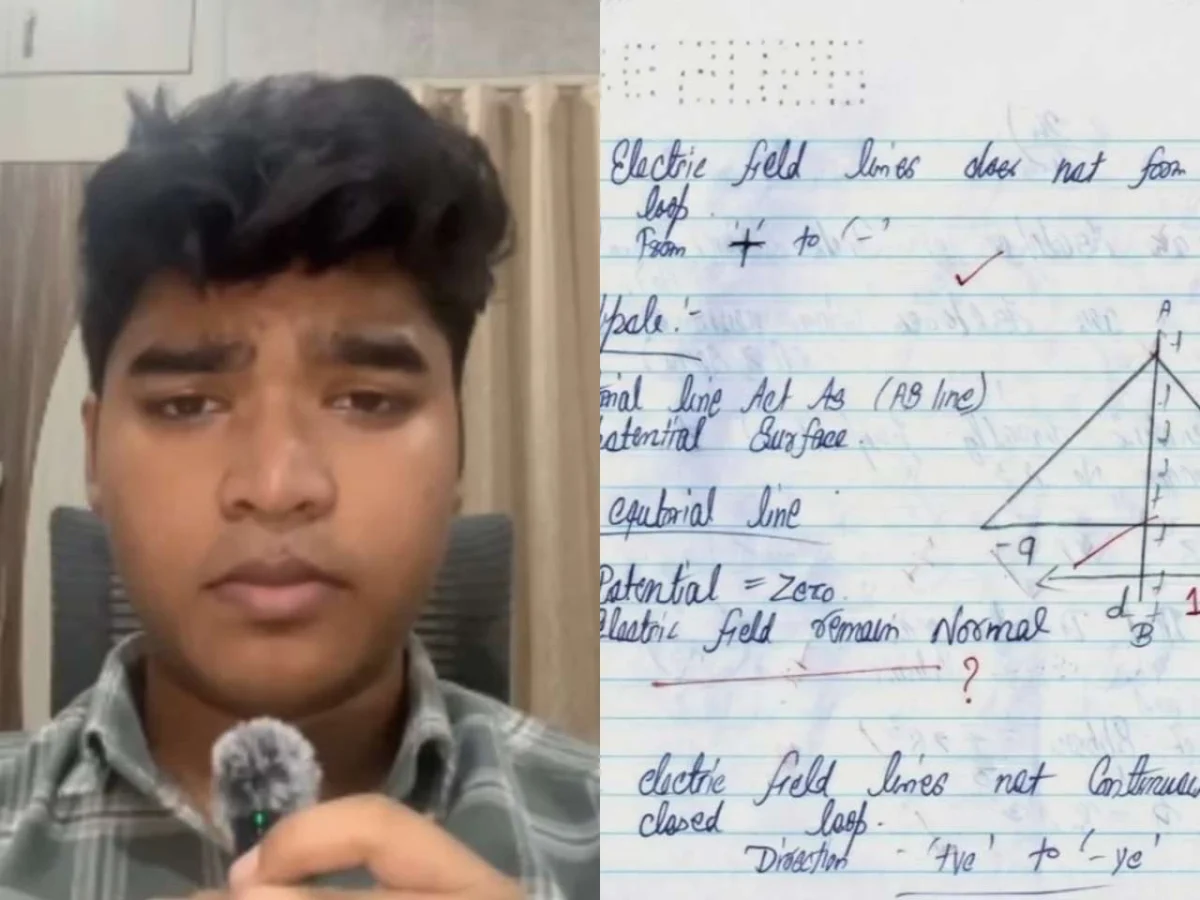 Electric field lines does not form
loop.
From '+' to '-'
A
pole :-
rial line Act As (AB line)
otential Surface.
equtorial line
-q
Potential = Zero.
d
1
Electric field remain Normal
B
?
electric field lines not Continues
closed loop.
Direction - '+ve' to '-ve'